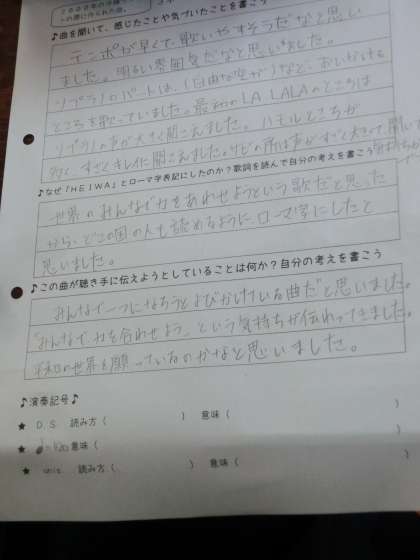 ♪曲を聞いて、感じたことや気づいたことを書こう
テンポが早くて、歌いやすそうだなと思い
ました。明るい雰囲気だなと思いました。
ソプラノのパートは、(自由な空が)など、おいかける
ところを歌っていました。最初のLA,LALAのところは
ソプラノの声が大きく聞こえました。ハモるところが
すごくキレイに聞こえました。サビの所は声がすごく大きくて、聞いて
気持ちが
♪なぜ「HEIWA」とローマ字表記にしたのか?歌詞を読んで自分の考えを書こう
世界のみんなで力をあわせようという歌だと思った
から、どこの国の人も読めるように、ローマ字にしたと
思いました。
♪この曲が聴き手に伝えようとしていることは何か?自分の考えを書こう
みんなで一つになろうとよびかけている曲だと思いました。
"みんなで、力を合わせよう"という気持ちが伝わってきました。
平和の世界を願っているのかなと思いました。
♪演奏記号♪
★ D.S. 読み方( ) 意味( )
★ 意味( )
★ 読み方( ) 意味( )